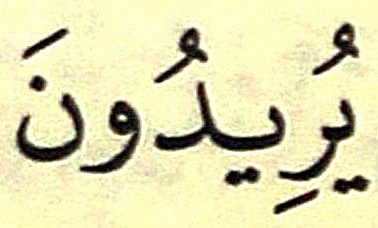 يُرِيدُونَ